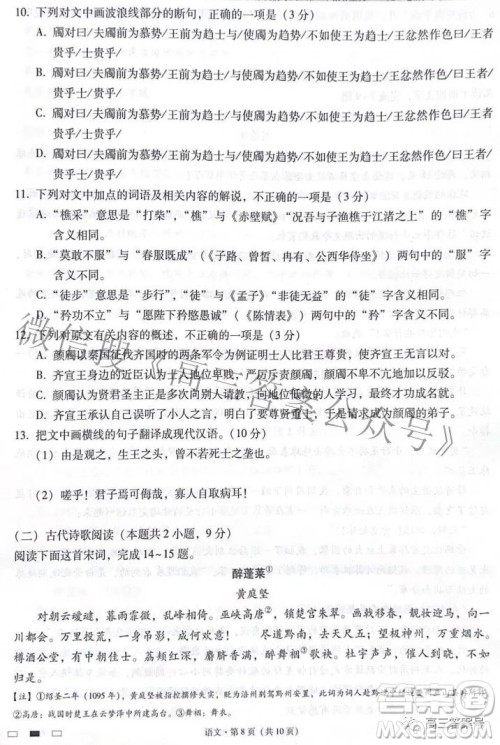 10. 下列对文中画波浪线部分的断句，正确的一项是（3 分）
A. 斶对曰/夫斶前为慕势/王前为趋士/与使斶为趋势/不如使王为趋士/王忿然作色/曰王者
贵乎/士贵乎/
B. 斶对曰/夫斶前为慕势/王前为趋士/与使斶为趋势/不如使王为趋士/王忿然作色曰/王者
贵乎士/贵乎/
C. 斶对曰/夫斶前为慕势/王前为趋士与/使斶为趋势/不如使王为趋士/王忿然作色/曰王者
贵乎士/贵乎/
D. 斶对曰/夫斶前为慕势/王前为趋士/与使斶为趋势/不如使王为趋士/王忿然作色曰/王者
贵乎/士贵乎/
11. 下列对文中加点的词语及相关内容的解说，不正确的一项是（3 分）
A. “樵采”意思是“打柴”，“樵”与《赤壁赋》“况吾与子渔樵于江渚之上”的“樵”字
含义相同。
B. “莫敢不服”与“春服既成”（《子路、曾皙、冉有、公西华侍坐》）两句中的“服”字
含义不同。
C. “徒步”意思是“步行”，“徒”与《孟子》“非徒无益”的“徒”字含义相同。
D. “矜功不立”与“愿陛下矜愍愚诚”（《陈情表》）两句中的“矜”字含义不同。
12. 下列对原文有关内容的概述，不正确的一项是（3 分）
A. 颜斶以秦国征伐齐国时的两条军令为例证明士人比君王尊贵，使齐宣王无言以对。
B. 齐宣王身边的近臣认为士人地位卑贱，严厉斥责颜斶，颜斶不卑不亢地加以反驳。
C. 颜斶认为贤君圣主正是因为不以向人请教为羞耻，不以向地位低微的人学习为惭愧，
最终才成就了功名。
D. 齐宣王承认自己听了颜斶的言论后深受触动，于是放下君王的尊贵，请求成为颜斶的
弟子。
13. 把文中画横线的句子翻译成现代汉语。（10 分）
（1）由是观之，生王之头，曾不若死士之垄也。
（2）嗟乎！君子焉可侮哉，寡人自取病耳！
（二）古代诗歌阅读（本题共 2 小题，9 分）
阅读下面这首宋词，完成 14~15 题。
醉蓬莱①
黄庭坚
对朝云叆叇，暮雨霏微，乱峰相倚。巫峡高唐②，锁楚宫朱翠。画戟移春，靓妆迎马，向一
川都会。万里投荒，一身吊影，成何欢意！ 尽道黔南，去天尺五；望极神州，万里烟水。
樽酒公堂，有中朝佳士。荔颊红深，麝脐香满，醉舞裀③歌袂。杜宇声声，催人到晓，不如
归是。
［注］①绍圣二年（1095 年），黄庭坚被加以修史失实，贬为涪州别驾黔州安置，
②高唐：战国时楚王在云梦泽中所建高台。③裀：舞衣。
语文·第 8 页（共 10 页）
微信搜《高三答案公众号》
高三答案号